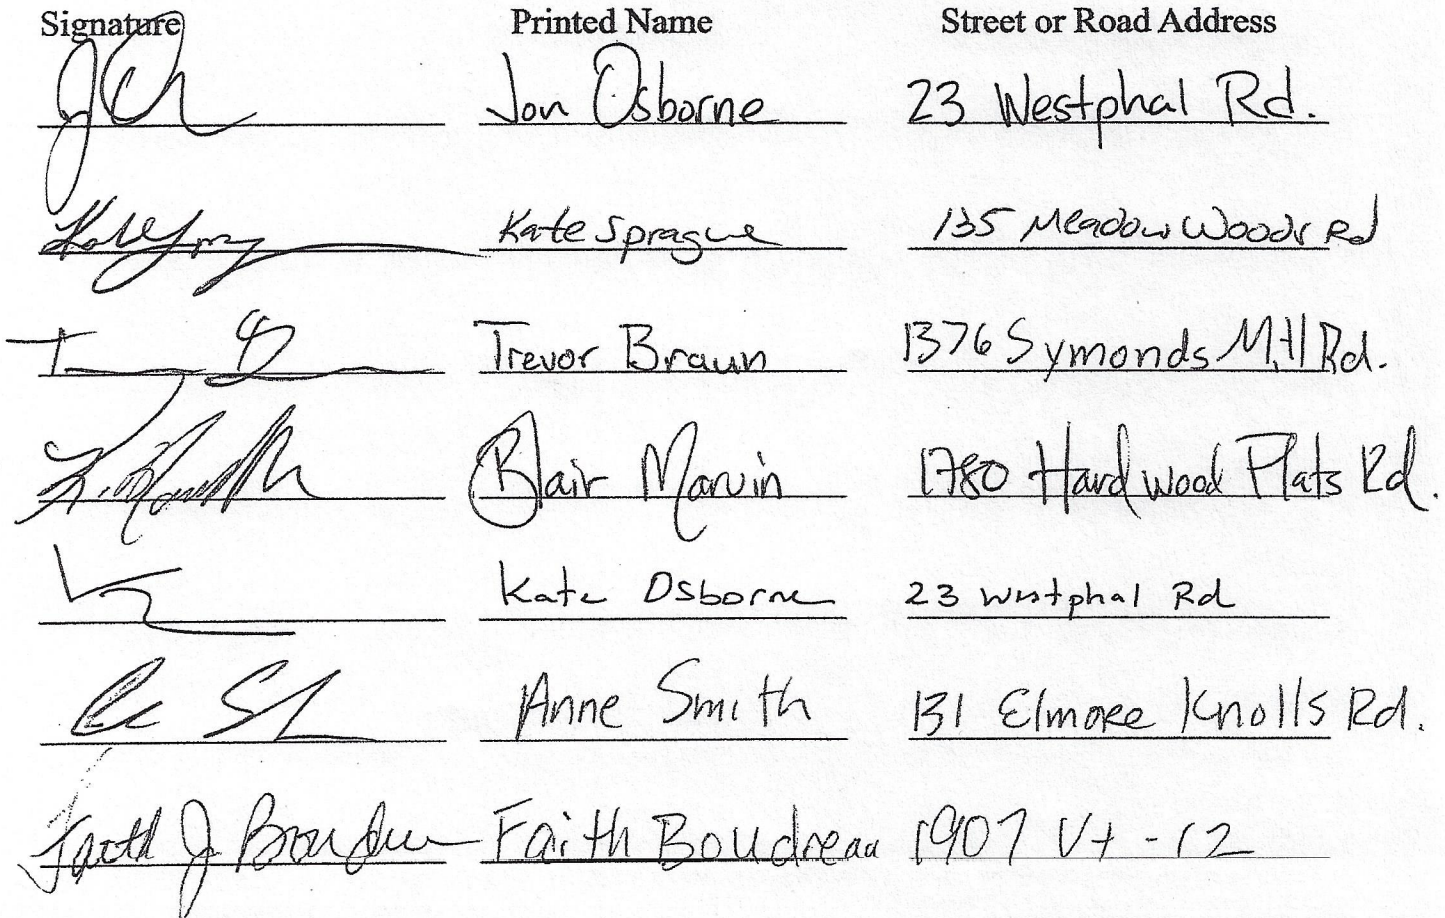 Signature Printed Name Street or Road Address
Jon Osborne 23 Westphal Rd.
Kate Sprague 135 Meadow Woods Rd
Trevor Braun 1376 Symonds Mill Rd.
Blair Marvin 1780 Hardwood Flats Rd.
Kate Osborne 23 Westphal Rd
Anne Smith 131 Elmore Knolls Rd.
Faith J Boudreau Faith Boudreau 1907 Vt-12